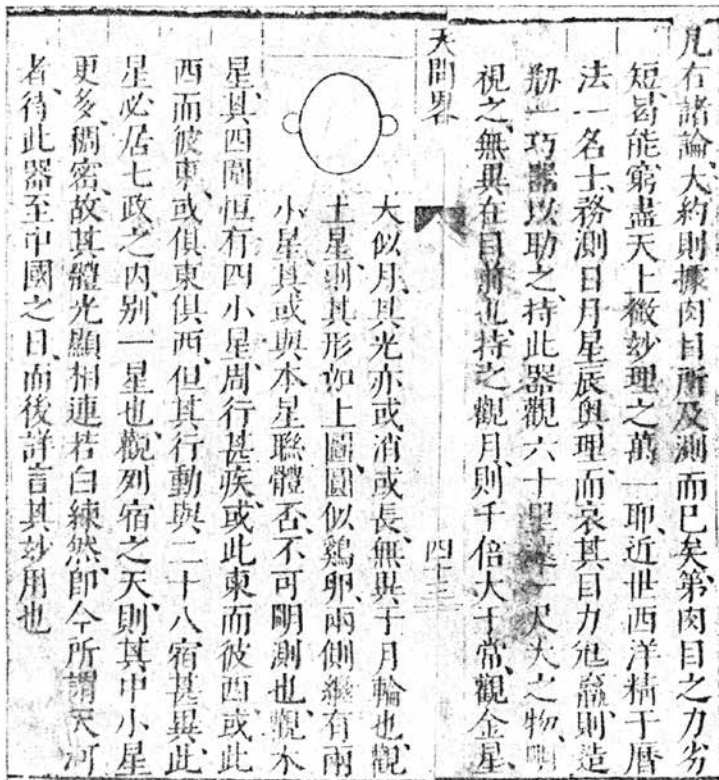 凡右諸論、大約則據肉目所及測而已矣、第肉目之力劣
短、曷能窮盡天上微妙理之萬一耶、近世西洋精于曆
法一名士、務測日月星辰奧理、而哀其目力尫羸、則造
剏一巧器以助之、持此器觀六十里遠一尺大之物、明
視之、無異在目前也、持之觀月、則千倍大于常、觀金星、
天問畧 四十三
大似月、其光亦或消或長、無異于月輪也、觀
土星、則其形如上圖、圓似鷄卵、兩側繼有兩
小星、其或與本星聯體否、不可明測也、觀木
星、其四圍恒有四小星、周行甚疾、或此東而彼西、或此
西而彼東、或俱東俱西、但其行動與二十八宿甚異、此
星必居七政之內、別一星也、觀列宿之天、則其中小星
更多、稠密、故其體光顯相連若白練然、即今所謂天河
者、待此器至中國之日、而後詳言其妙用也